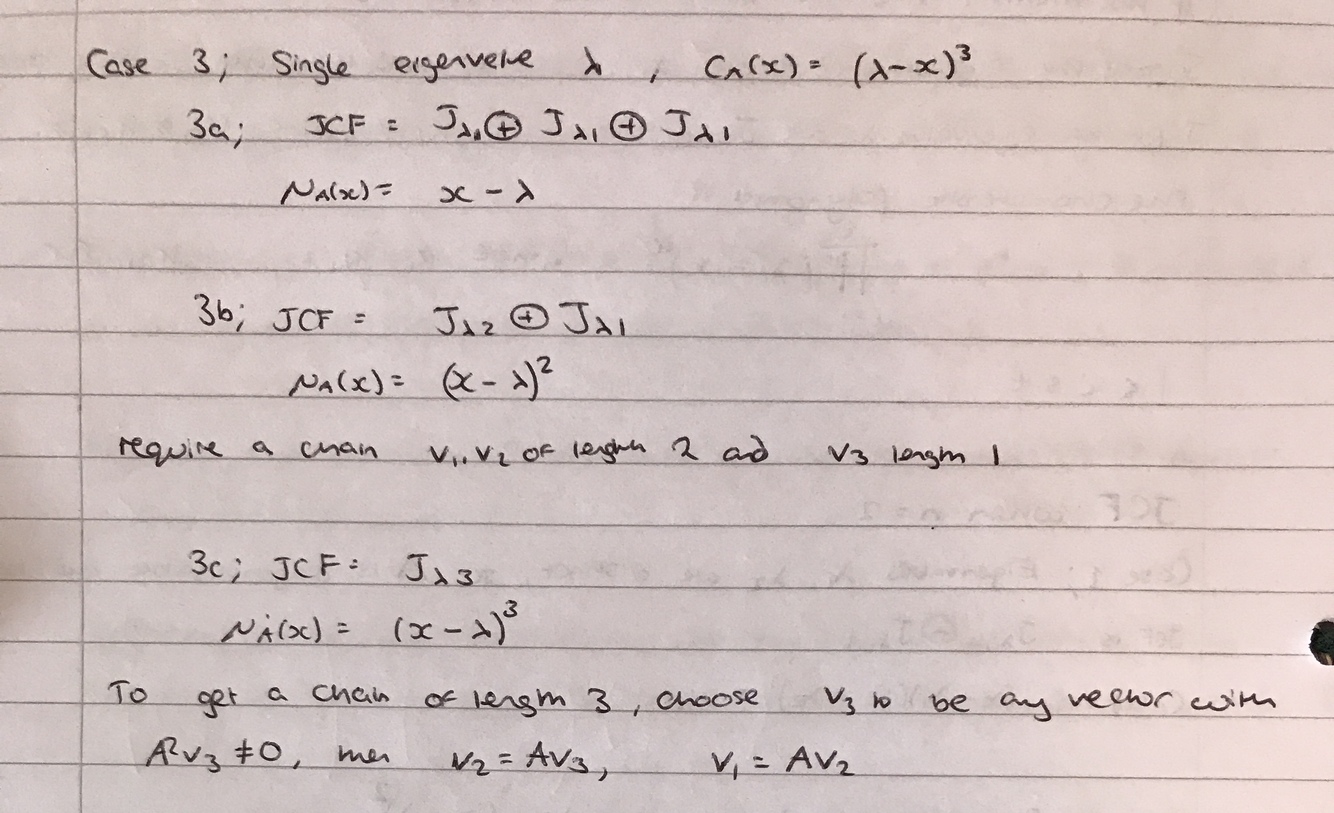 Case 3; Single eigenvalue λ, C_A(x) = (λ-x)³
3a; JCF = J_λ1 ⊕ J_λ1 ⊕ J_λ1
μ_A(x) = x - λ
3b; JCF = J_λ2 ⊕ J_λ1
μ_A(x) = (x - λ)²
require a chain v₁, v₂ of length 2 and v₃ length 1
3c; JCF = J_λ3
μ_A(x) = (x - λ)³
To get a chain of length 3, choose v₃ to be any vector with
A²v₃ ≠ 0, then v₂ = Av₃, v₁ = Av₂